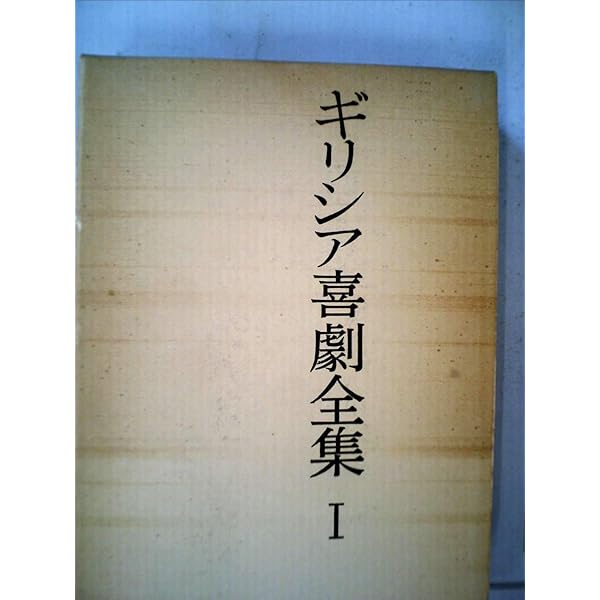 ギリシア喜劇全集 I